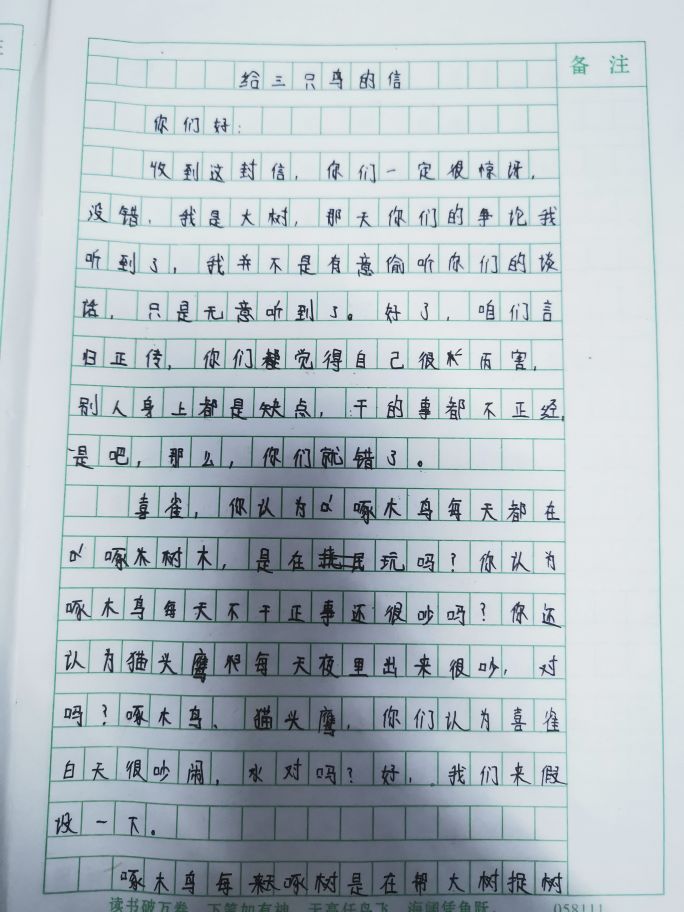 备 注
给三只鸟的信
你们好:
收到这封信,你们一定很惊讶,
没错,我是大树,那天你们的争论我
听到了,我并不是有意偷听你们的谈
话,只是无意听到了。好了,咱们言
归正传,你们都觉得自己很厉害,
别人身上都是缺点,干的事都不正经,
是吧,那么,你们就错了。
喜雀,你认为啄木鸟每天都在
啄树木,是在玩吗?你认为
啄木鸟每天不干正事还很吵吗?你还
认为猫头鹰每天夜里出来很吵,对
吗?啄木鸟、猫头鹰,你们认为喜雀
白天很吵闹,对吗?好,我们来假
设一下。
啄木鸟每天啄树是在帮大树捉树
读书破万卷 下笔如有神 天高任鸟飞 海阔凭鱼跃 058111